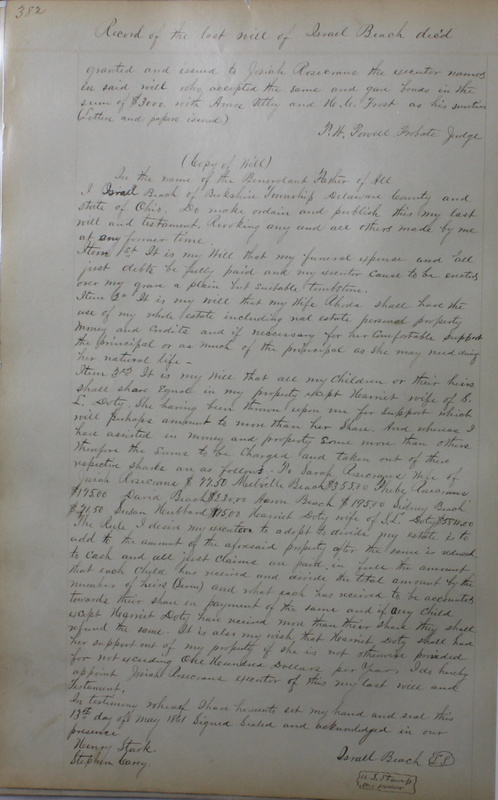 382
Record of the last will of Israel Beach dec'd
granted and issued to Josiah Rosecrans the executor named
in said will who accepted the same and gave bonds in the
sum of $3000 with Amos Utley and H. C. Frost as his sureties
(Letters and papers issued)
P. H. Powell Probate Judge
(Copy of Will)
In the name of the Benevolent Father of All
I Israel Beach of Berkshire Township Delaware County and
State of Ohio. Do make ordain and publish this my last
will and testament, Revoking any and all others made by me
at any former time.
Item 1st It is my Will that my funeral expense and all
just debts be fully paid and my executor cause to be erected
over my grave a plain but suitable tombstone.
Item 2d It is my will that my Wife shall have the
use of my whole estate including real estate personal property
Money and Credits and if necessary for her Comfortable support
the principal or as much of the principal as she may need during
her natural life —
Item 3rd It is my Will that all my Children or their heirs
shall share Equal in my property except Harriet wife of S.
L. Doty, She having been thrown upon me for support which
will perhaps amount to more than her share. And whereas I
have assisted in money and property some more than others
therefore the sums to be Charged and taken out of their
respective shares are as follows - To Sarah Rosecrans wife of
Josiah Rosecrans $ 77.50 Melville Beach $355.00 Phebe Rosecrans
$175.00 David Beach $230.00 Aaron Beach $ 195.00 Sidney Beach
$71.50 Susan Hubbard Harriet Doty wife of S. L. Doty
The Rule I desire my executor to adopt to divide my estate is to
add to the amount of the aforesaid property after the same is reduced
to Cash and all just Claims are paid the amount
that each Child has received and divide the total amount by the
number of heirs and what each has received to be accounted
towards their share in payment of the same and if any Child
except Harriet Doty have received more than their share they shall
refund the same. It is also my wish that Harriet Doty shall have
her support out of my property if she is not otherwise provided
for not exceeding One Hundred Dollars per Year, I do hereby
appoint Josiah Rosecrans executor of this my last will and
Testament,
In testimony whereof I have hereunto set my hand and seal this
13th day of May 1861 Signed Sealed and acknowledged in our
presence
Henry Stark
Stephen Carry.
Israel Beach
U. S. Stamp